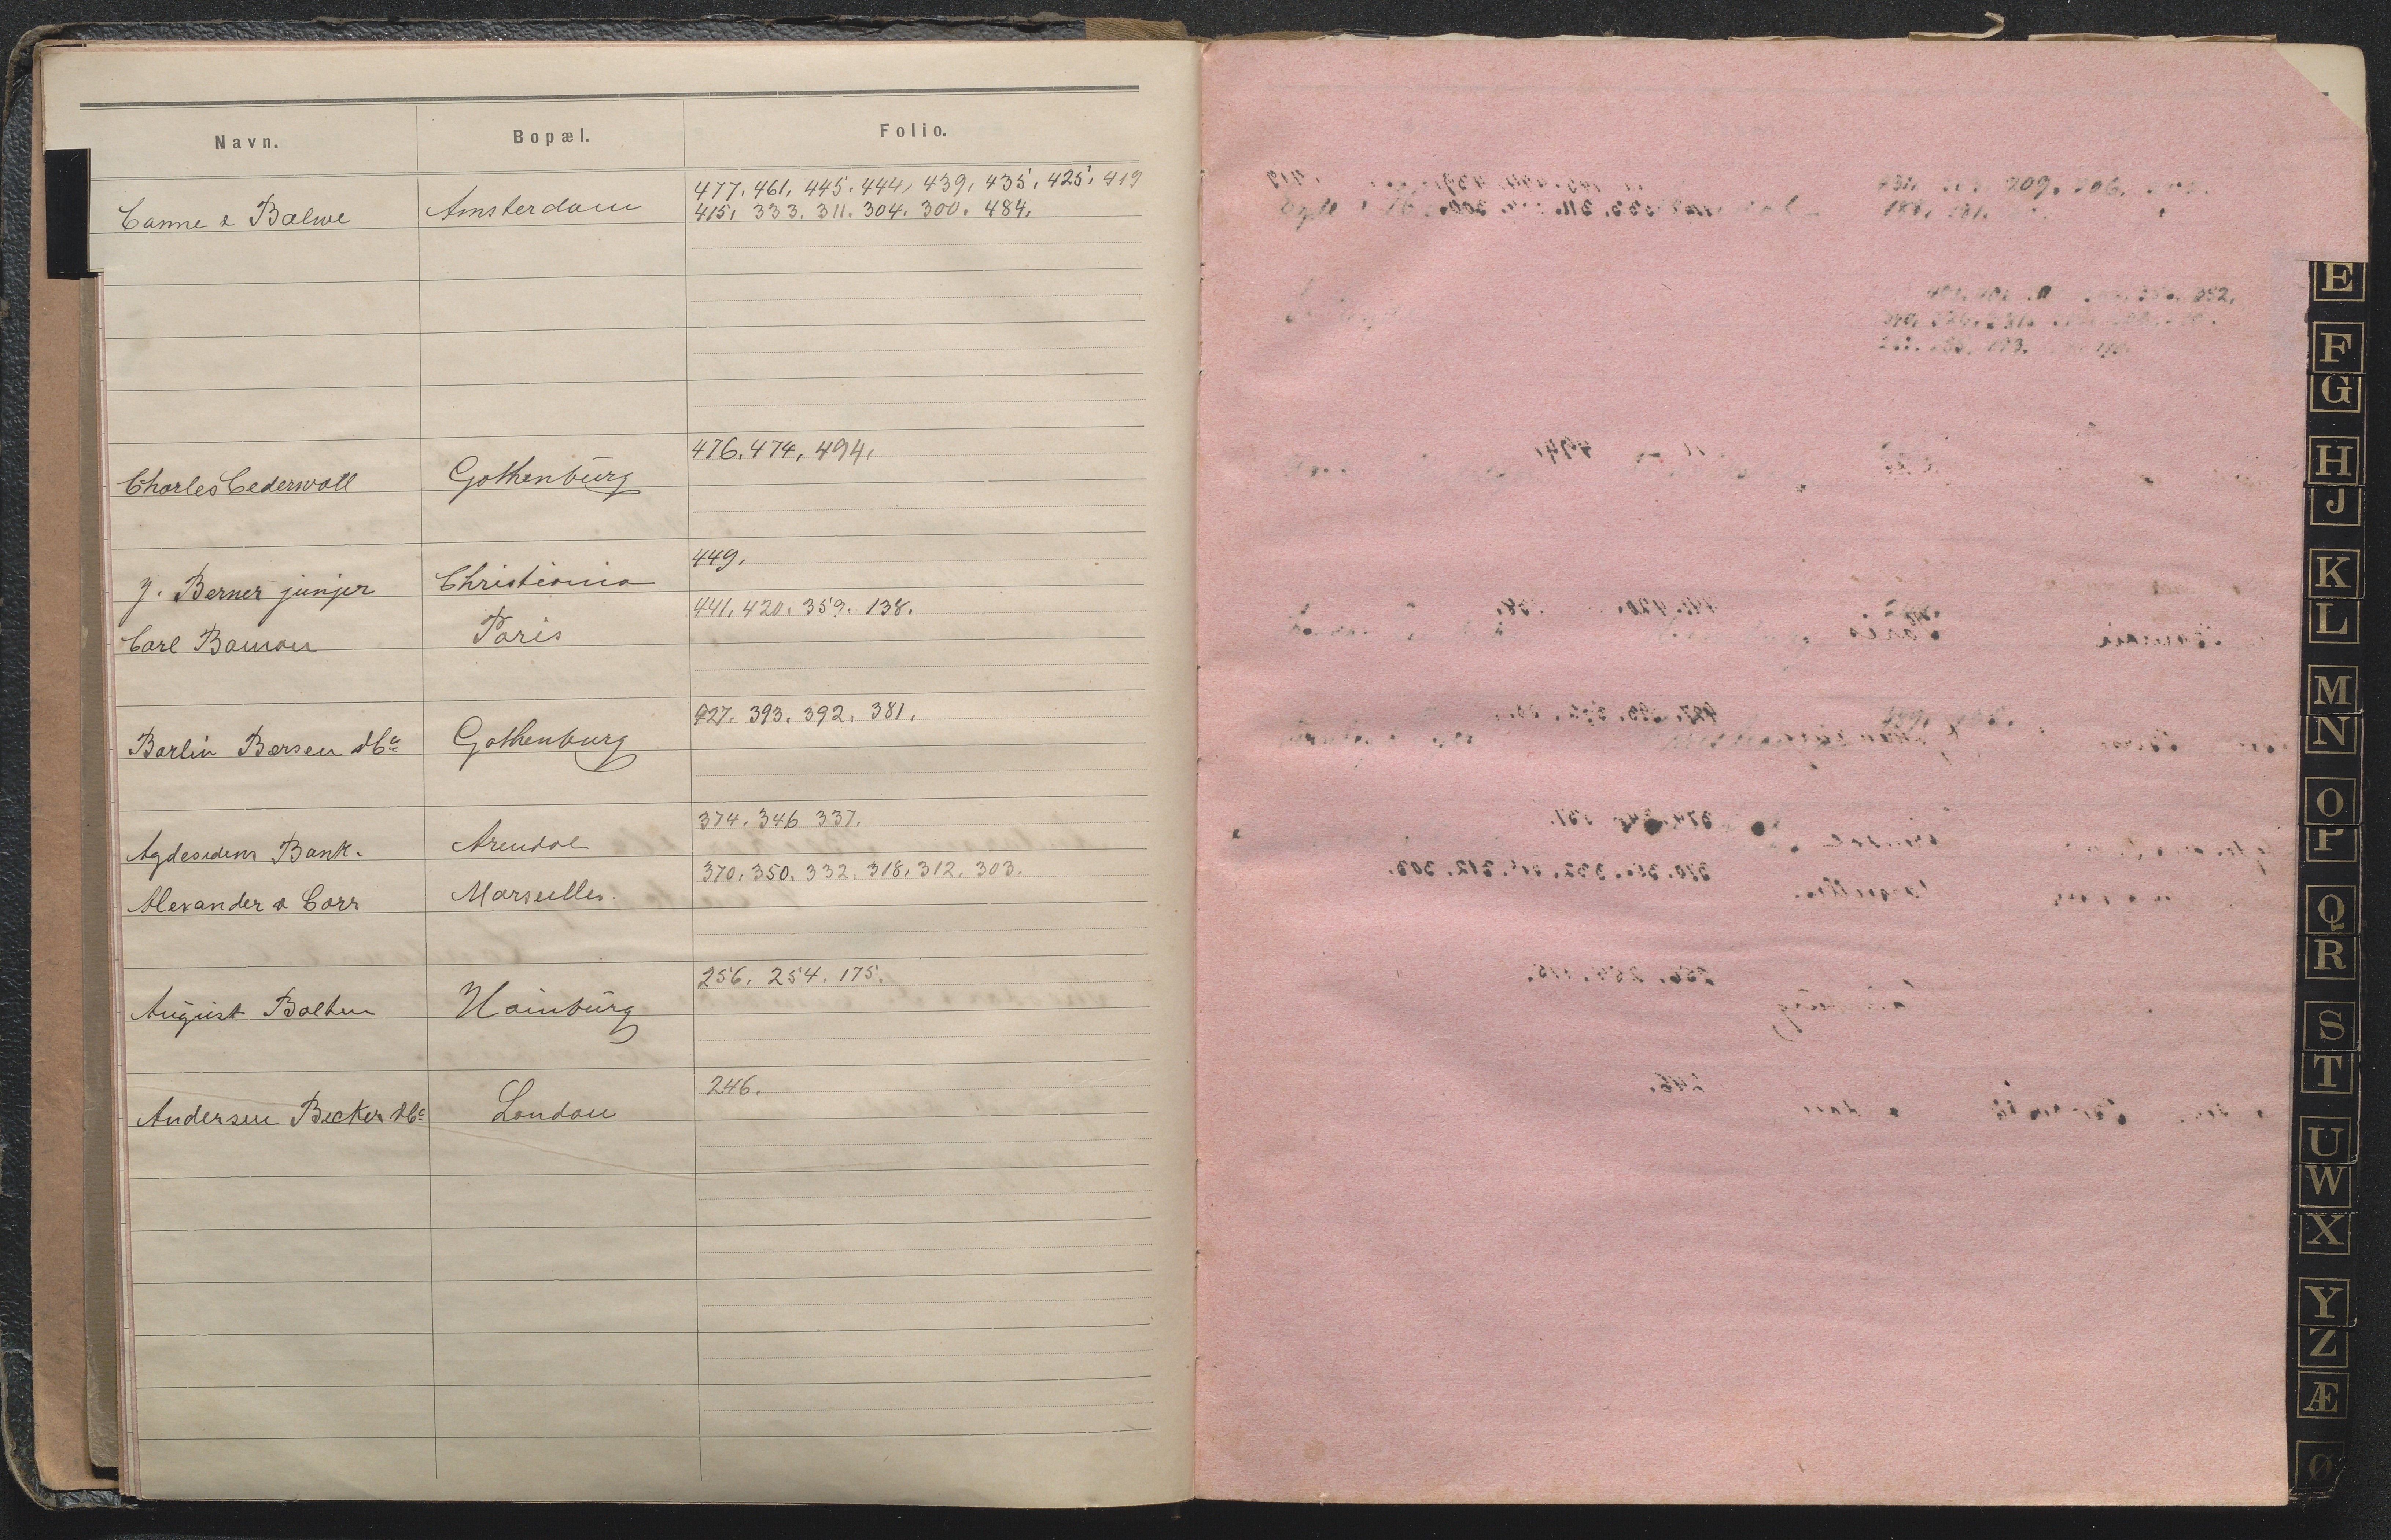 Navn. Bopæl. Folio.
477. 461. 445. 444. 439. 435. 425. 419
Canne & Balwe Amsterdam 415. 333. 311. 304. 300. 484.
476. 474. 494.
Charles Cederwall Gothenburg
449.
J. Berner junjor Christiania
441. 420. 359. 138.
Carl Bamau Paris
427. 393. 392. 381.
Barlin Bersen &Co Gothenburg
374. 346 337.
Agdesidens Bank. Arendal
370. 350. 332. 318. 312. 303.
Alexander & Carr Marseilles.
256. 254. 175.
August Bolten Hamburg
246.
Andersen Becker &Co London
E
F
G
H
J
K
L
M
N
O
P
Q
R
S
T
U
W
X
Y
Z
Æ
Ø